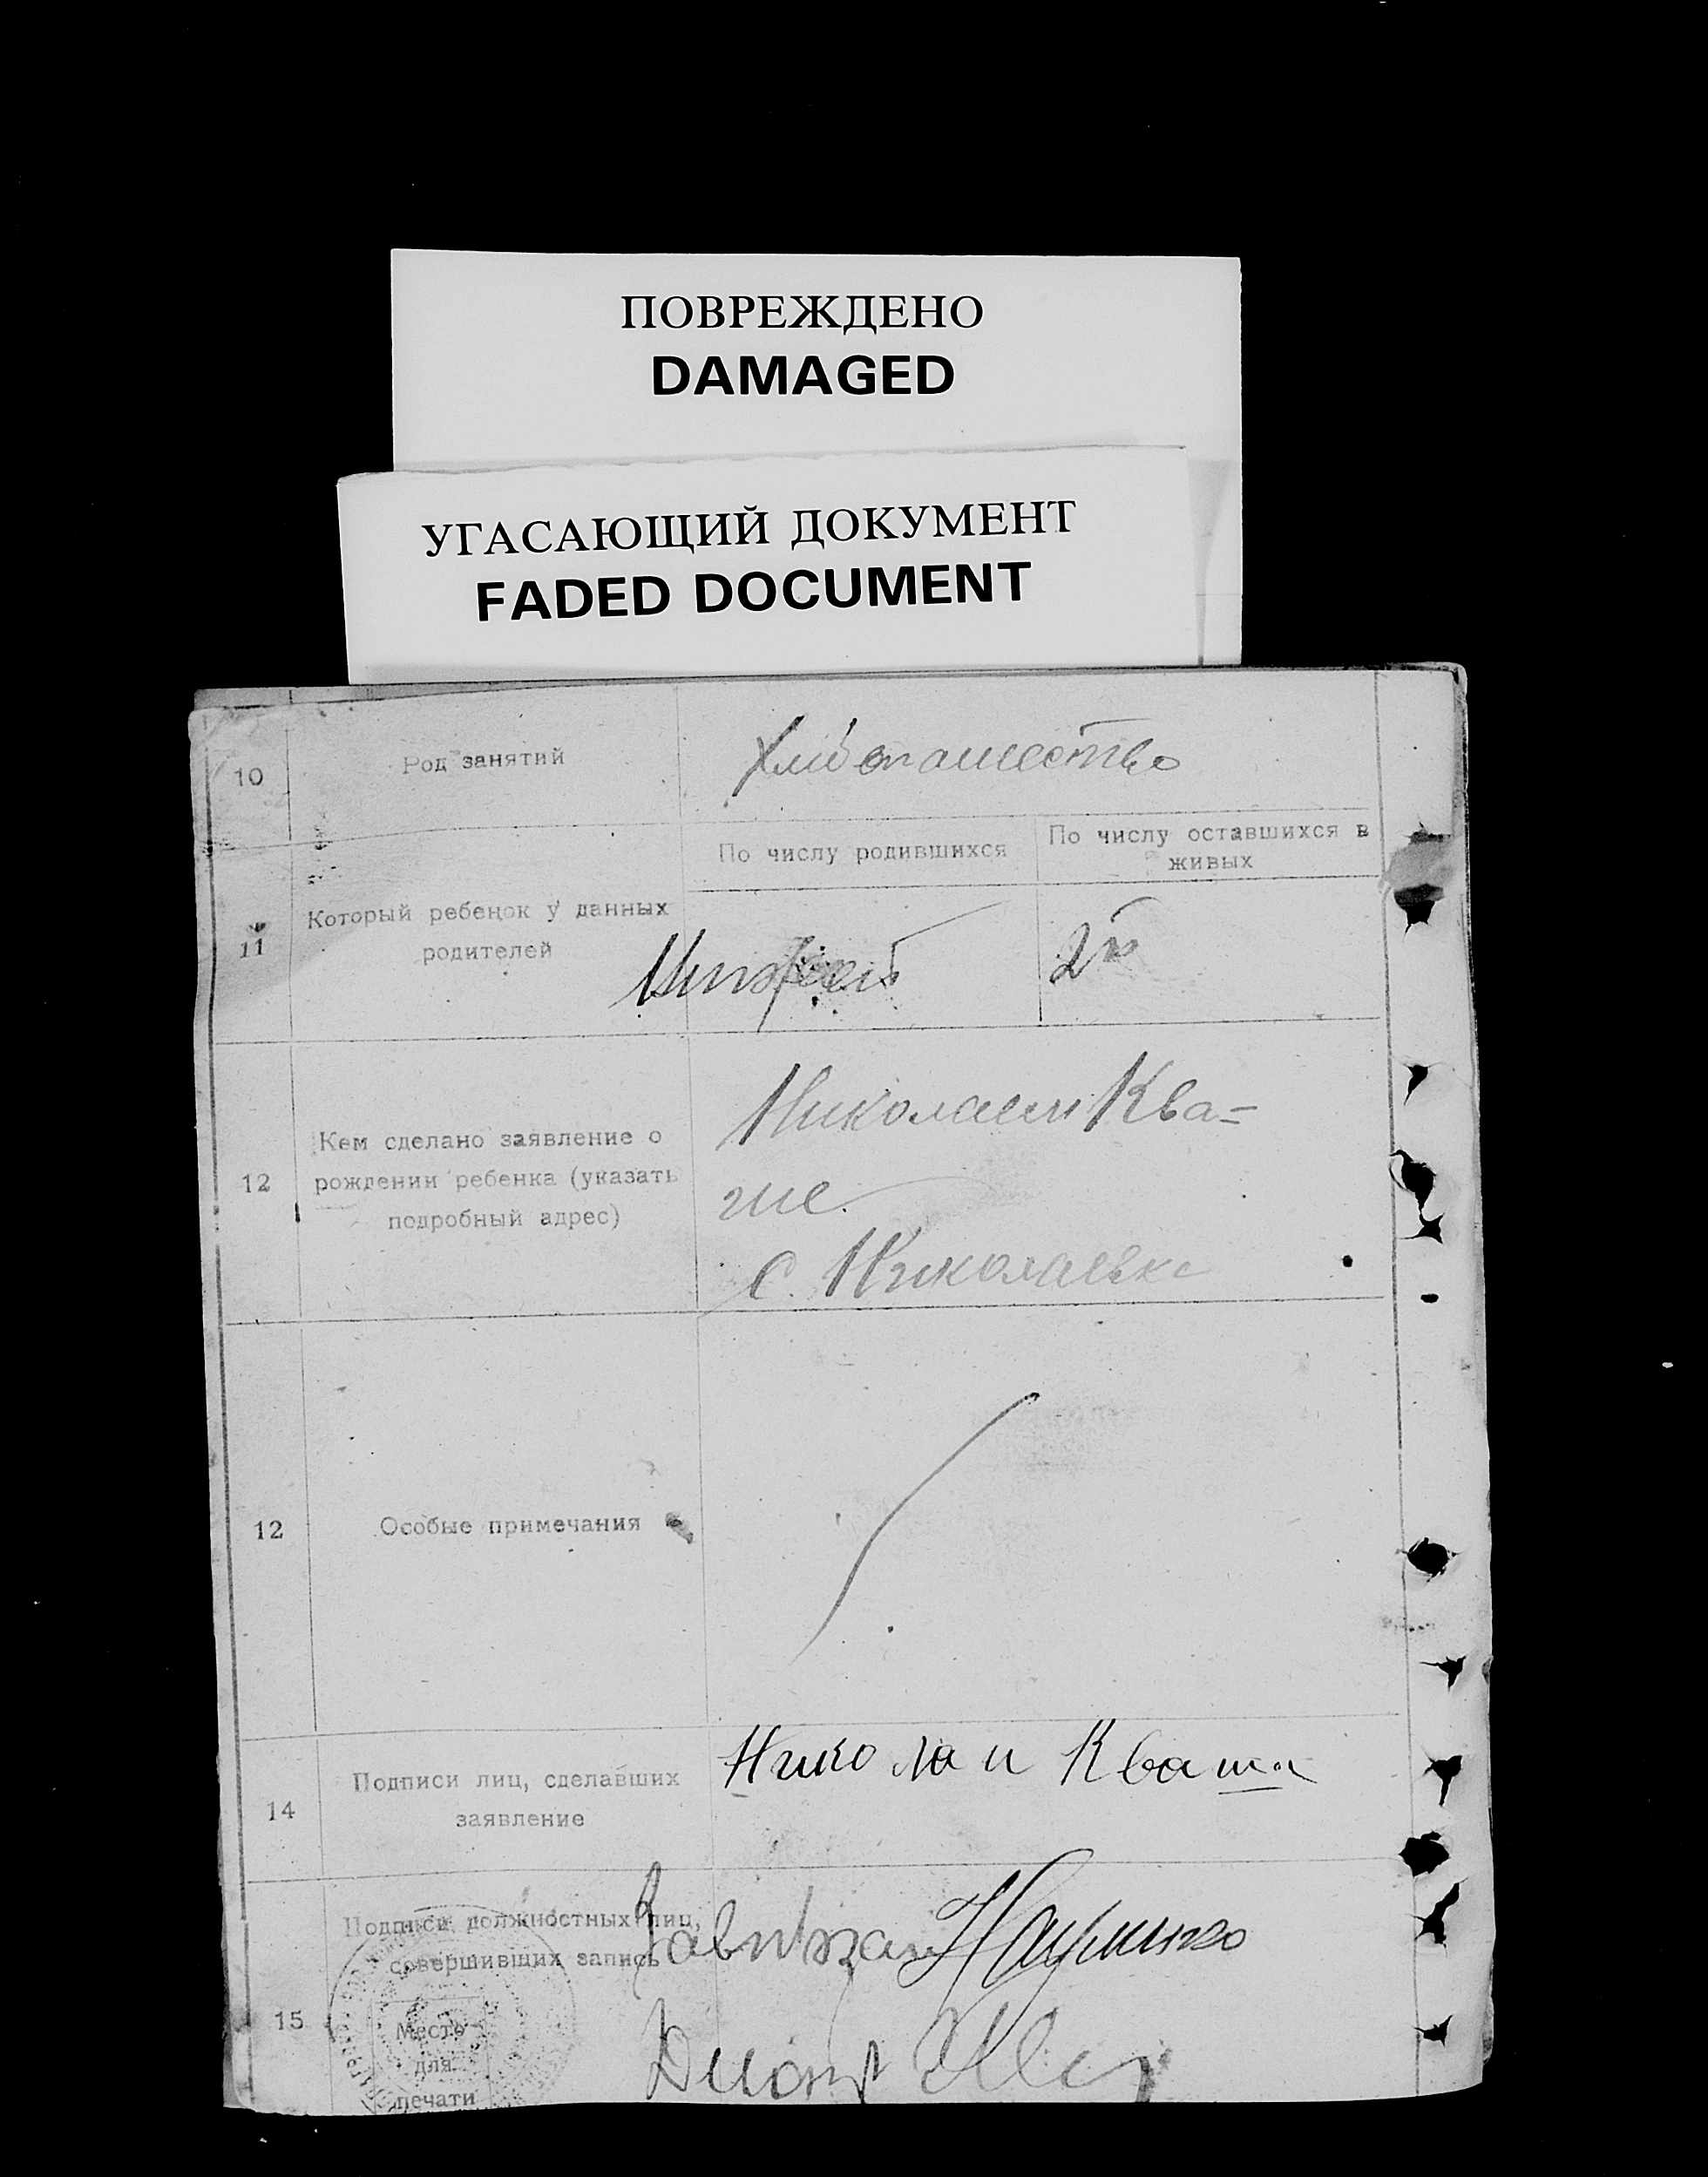 ПОВРЕЖДЕНО
DAMAGED
УГАСАЮЩИЙ ДОКУМЕНТ
FADED DOCUMENT
10
Род занятий
Хлибопашество
По числу родившихся
По числу оставшихся в
живых
11
Который ребенок у данных
родителей
2й
12
Кем сделано заявление о
рождении ребенка (указать
подробный адрес)
Николаем Ква-
ше
с. Николаевка
12
Особые примечания
14
Подписи лиц, сделавших
заявление
Николаи Кваша
15
Подписи должностных лиц,
совершивших запись
Место
для
печати